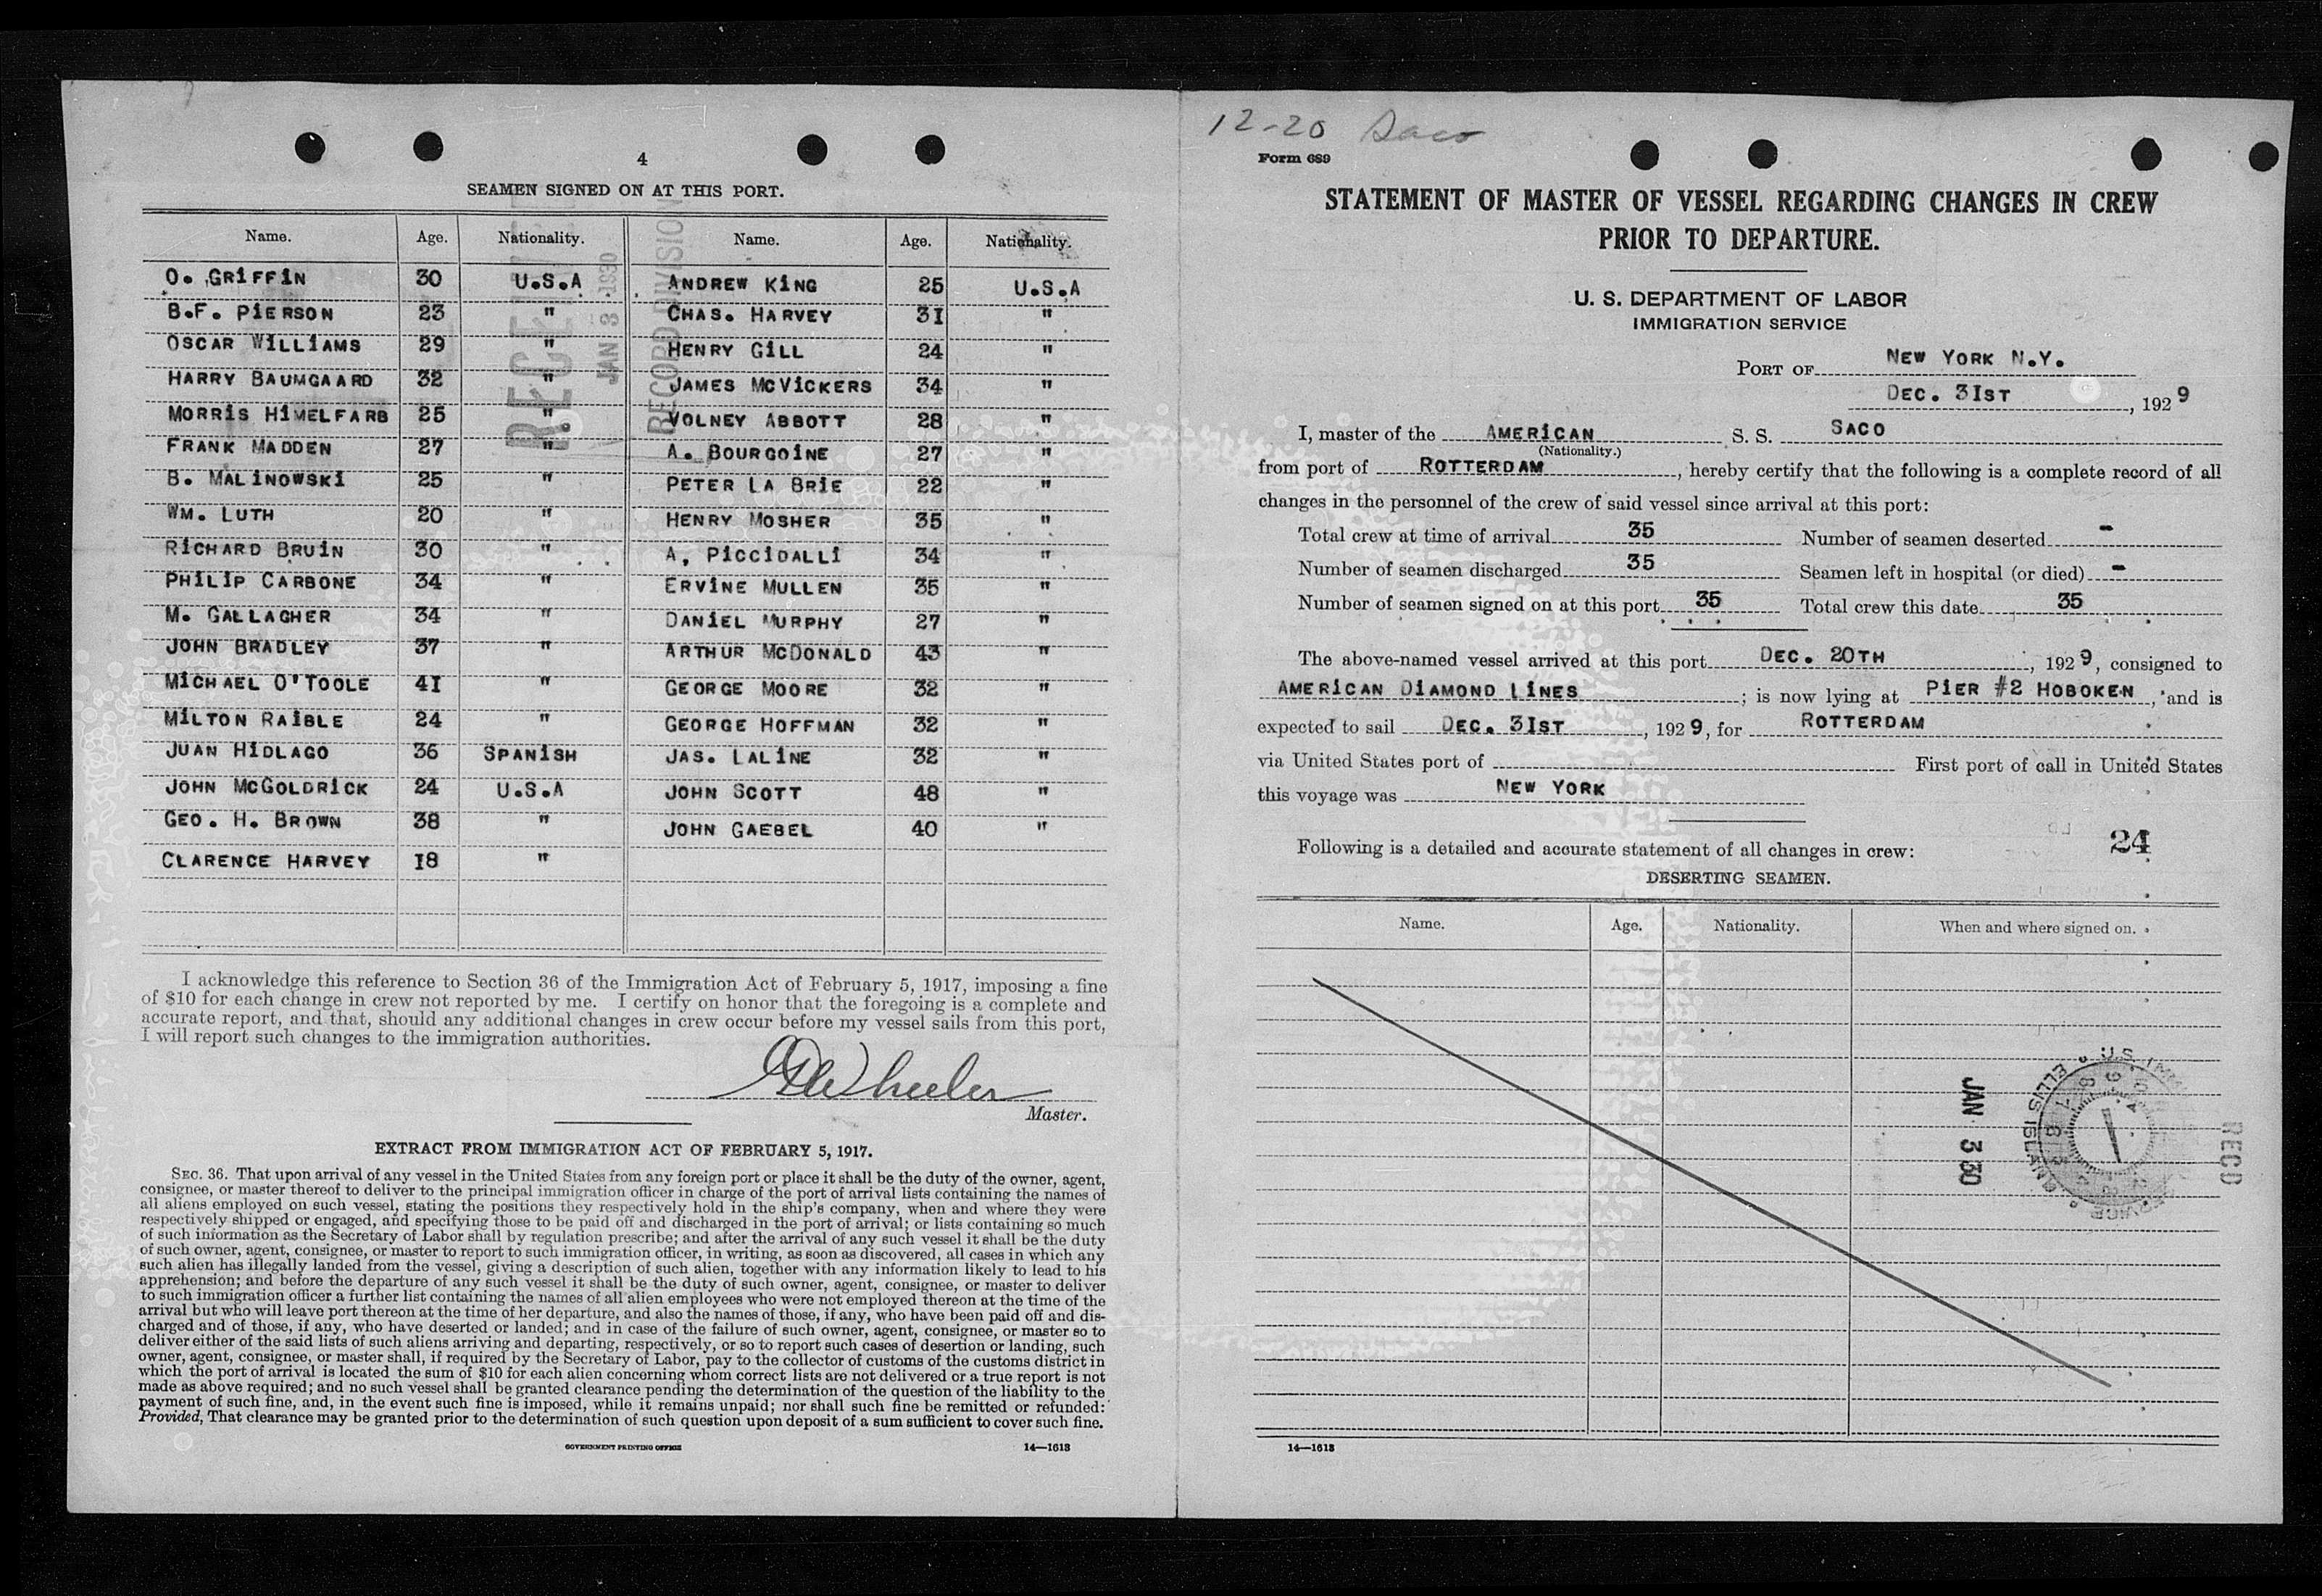 4
SEAMEN SIGNED ON AT THIS PORT.
Name. Age. Nationality. Name. Age. Nationality.
O. GRIFFIN 30 U.S.A ANDREW KING 25 U.S.A
B.F. PIERSON 23 " CHAS. HARVEY 31 "
OSCAR WILLIAMS 29 " HENRY GILL 24 "
HARRY BAUMGAARD 32 " JAMES MCVICKERS 34 "
MORRIS HIMELFARB 25 " VOLNEY ABBOTT 28 "
FRANK MADDEN 27 " A. BOURGOINE 27 "
B. MALINOWSKI 25 " PETER LA BRIE 22 "
WM. LUTH 20 " HENRY MOSHER 35 "
RICHARD BRUIN 30 " A, PICCIDALLI 34 "
PHILIP CARBONE 34 " ERVINE MULLEN 35 "
M. GALLAGHER 34 " DANIEL MURPHY 27 "
JOHN BRADLEY 37 " ARTHUR MCDONALD 43 "
MICHAEL O'TOOLE 41 " GEORGE MOORE 32 "
MILTON RAIBLE 24 " GEORGE HOFFMAN 32 "
JUAN HIDLAGO 36 SPANISH JAS. LALINE 32 "
JOHN MCGOLDRICK 24 U.S.A JOHN SCOTT 48 "
GEO. H. BROWN 38 " JOHN GAEBEL 40 "
CLARENCE HARVEY 18 "
RECEIVED
JAN 3 1930
RECORD DIVISION
I acknowledge this reference to Section 36 of the Immigration Act of February 5, 1917, imposing a fine
of $10 for each change in crew not reported by me. I certify on honor that the foregoing is a complete and
accurate report, and that, should any additional changes in crew occur before my vessel sails from this port,
I will report such changes to the immigration authorities.
Wheeler
Master.
EXTRACT FROM IMMIGRATION ACT OF FEBRUARY 5, 1917.
SEC. 36. That upon arrival of any vessel in the United States from any foreign port or place it shall be the duty of the owner, agent,
consignee, or master thereof to deliver to the principal immigration officer in charge of the port of arrival lists containing the names of
all aliens employed on such vessel, stating the positions they respectively hold in the ship's company, when and where they were
respectively shipped or engaged, and specifying those to be paid off and discharged in the port of arrival; or lists containing so much
of such information as the Secretary of Labor shall by regulation prescribe; and after the arrival of any such vessel it shall be the duty
of such owner, agent, consignee, or master to report to such immigration officer, in writing, as soon as discovered, all cases in which any
such alien has illegally landed from the vessel, giving a description of such alien, together with any information likely to lead to his
apprehension; and before the departure of any such vessel it shall be the duty of such owner, agent, consignee, or master to deliver
to such immigration officer a further list containing the names of all alien employees who were not employed thereon at the time of the
arrival but who will leave port thereon at the time of her departure, and also the names of those, if any, who have been paid off and dis-
charged and of those, if any, who have deserted or landed; and in case of the failure of such owner, agent, consignee, or master so to
deliver either of the said lists of such aliens arriving and departing, respectively, or so to report such cases of desertion or landing, such
owner, agent, consignee, or master shall, if required by the Secretary of Labor, pay to the collector of customs of the customs district in
which the port of arrival is located the sum of $10 for each alien concerning whom correct lists are not delivered or a true report is not
made as above required; and no such vessel shall be granted clearance pending the determination of the question of the liability to the
payment of such fine, and, in the event such fine is imposed, while it remains unpaid; nor shall such fine be remitted or refunded:
Provided, That clearance may be granted prior to the determination of such question upon deposit of a sum sufficient to cover such fine.
GOVERNMENT PRINTING OFFICE 14—1613
12-20 Saco
Form 689
STATEMENT OF MASTER OF VESSEL REGARDING CHANGES IN CREW
PRIOR TO DEPARTURE.
U. S. DEPARTMENT OF LABOR
IMMIGRATION SERVICE
PORT OF NEW YORK N.Y.
DEC. 31ST, 1929
I, master of the AMERICAN S. S. SACO
(Nationality.)
from port of ROTTERDAM, hereby certify that the following is a complete record of all
changes in the personnel of the crew of said vessel since arrival at this port:
Total crew at time of arrival 35 Number of seamen deserted -
Number of seamen discharged 35 Seamen left in hospital (or died) -
Number of seamen signed on at this port 35 Total crew this date 35
The above-named vessel arrived at this port DEC. 20TH, 1929, consigned to
AMERICAN DIAMOND LINES; is now lying at PIER #2 HOBOKEN, and is
expected to sail DEC. 31ST, 1929, for ROTTERDAM
via United States port of First port of call in United States
this voyage was NEW YORK
Following is a detailed and accurate statement of all changes in crew: 24
DESERTING SEAMEN.
Name. Age. Nationality. When and where signed on.
JAN 3 30
ELLIS ISLAND
RECD
14—1613